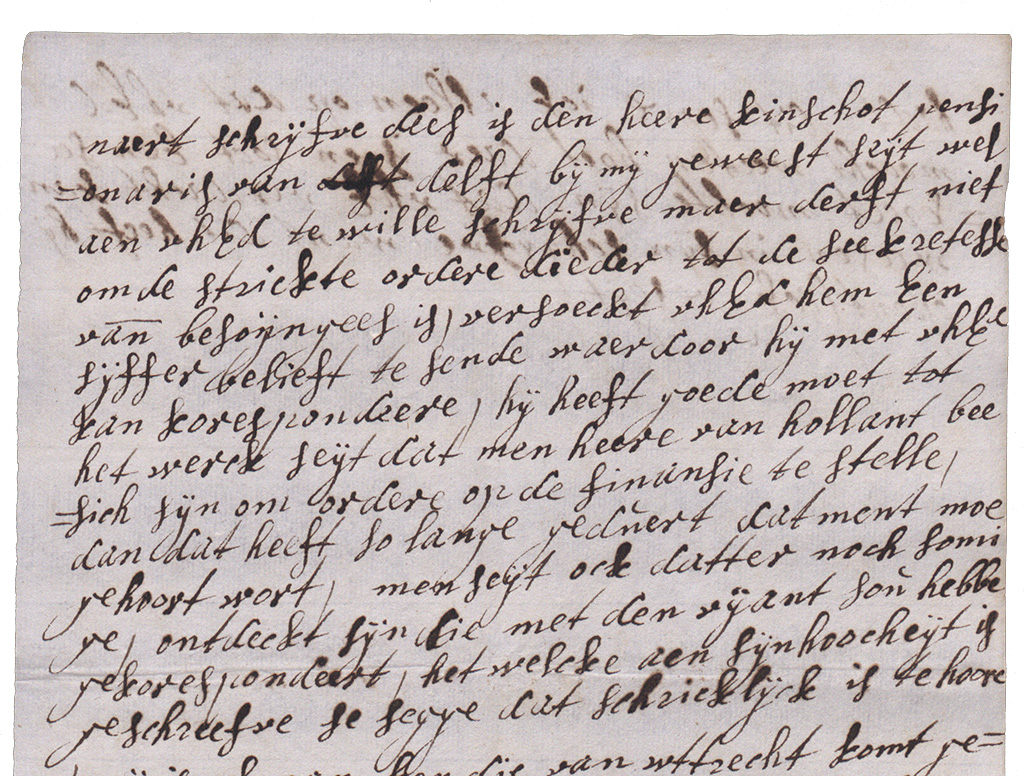 naert schryfve dees is den heere kinschot pensi
=onaris van delft by my geweest seyt wel
aen uhEd te wille schryfve maer derft niet
om de strickte ordere die der tot de seekretesse
van besoyngees is, versoeckt uhEd hem Een
syffer belieft te sende waerdoor hy met uhE
kan korespondeere, hy heeft goede moet tot
het werck seyt dat men heere van hollant bee
=sich syn om ordere op de finansie te stelle,
dan dat heeft so lange geduert dat ment moe
gehoort wort, men seyt ock datter noch somi
ge, ontdeckt syn die met den vyant sou hebbe
gekorespondeert, het welcke aen synhoocheyt is
geschreefve se segge dat schricklyck is te hoore
van wttrecht komt ge=